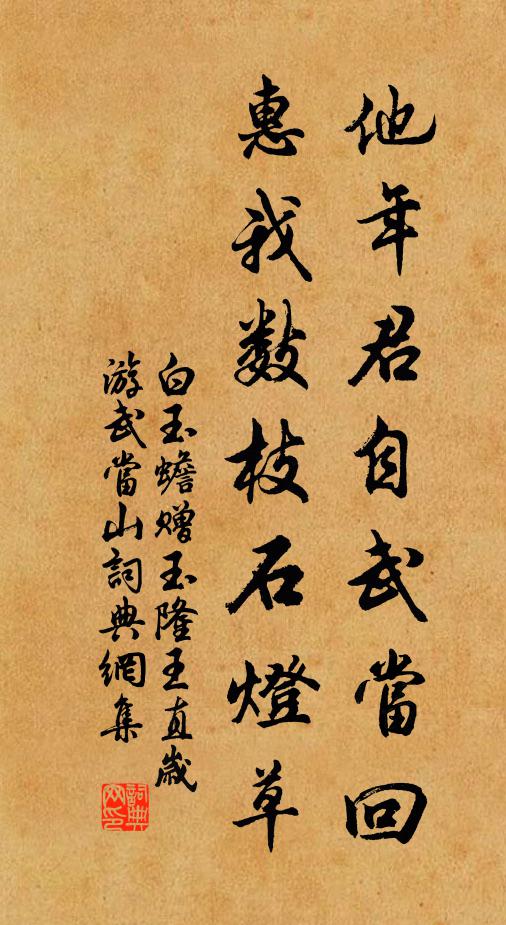 他年君自武當回
惠我数枝石燈草
白玉蟾贈玉隆王直歲
游武當山詞典網集
詞典网印